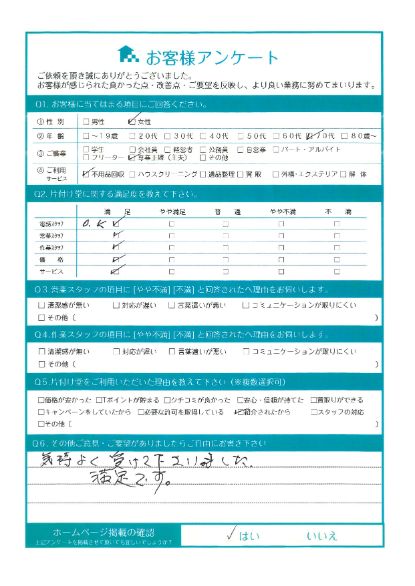 お客様アンケート
ご依頼を頂き誠にありがとうございました。
お客様が感じられた良かった点・改善点・ご要望を反映し、より良い業務に努めてまいります。
Q1. お客様に当てはまる項目にご回答ください。
① 性 別 □ 男性 ☑ 女性
② 年 齢 □ ～19歳 □ 20代 □ 30代 □ 40代 □ 50代 □ 60代 ☑ 70代 □ 80歳～
③ ご職業 □ 学生 □ 会社員 □ 経営者 □ 公務員 □ 自営業 □ パート・アルバイト
□ フリーター ☑ 専業主婦(主夫) □ その他
④ ご利用サービス ☑ 不用品回収 □ ハウスクリーニング □ 遺品整理 □ 買取 □ 外構・エクステリア □ 解体
Q2. 片付け堂に関する満足度を教えて下さい。
満 足 やや満足 普 通 やや不満 不 満
電話スタッフ O.K ☑ □ □ □ □
営業スタッフ ☑ □ □ □ □
作業スタッフ ☑ □ □ □ □
価 格 ☑ □ □ □ □
サービス ☑ □ □ □ □
Q3. 営業スタッフの項目に [やや不満] [不満] と回答された方へ理由をお伺いします。
□ 清潔感が無い □ 対応が遅い □ 言葉遣いが悪い □ コミュニケーションが取りにくい
□ その他 ( )
Q4. 作業スタッフの項目に [やや不満] [不満] と回答された方へ理由をお伺いします。
□ 清潔感が無い □ 対応が遅い □ 言葉遣いが悪い □ コミュニケーションが取りにくい
□ その他 ( )
Q5. 片付け堂をご利用いただいた理由を教えて下さい (※複数選択可)
□ 価格が安かった □ Tポイントが貯まる □ クチコミが良かった □ 安心・信頼が持てた □ 買取りができる
□ キャンペーンをしていたから □ 必要な許可を取得している ☑ 紹介されたから □ スタッフの対応
□ その他 ( )
Q6. その他ご意見・ご要望がありましたらご自由にお書き下さい
気持よく 負けて下さいました。
満足です。
ホームページ掲載の確認 ✓ はい いいえ
上記アンケートを掲載させて頂いても宜しいでしょうか?